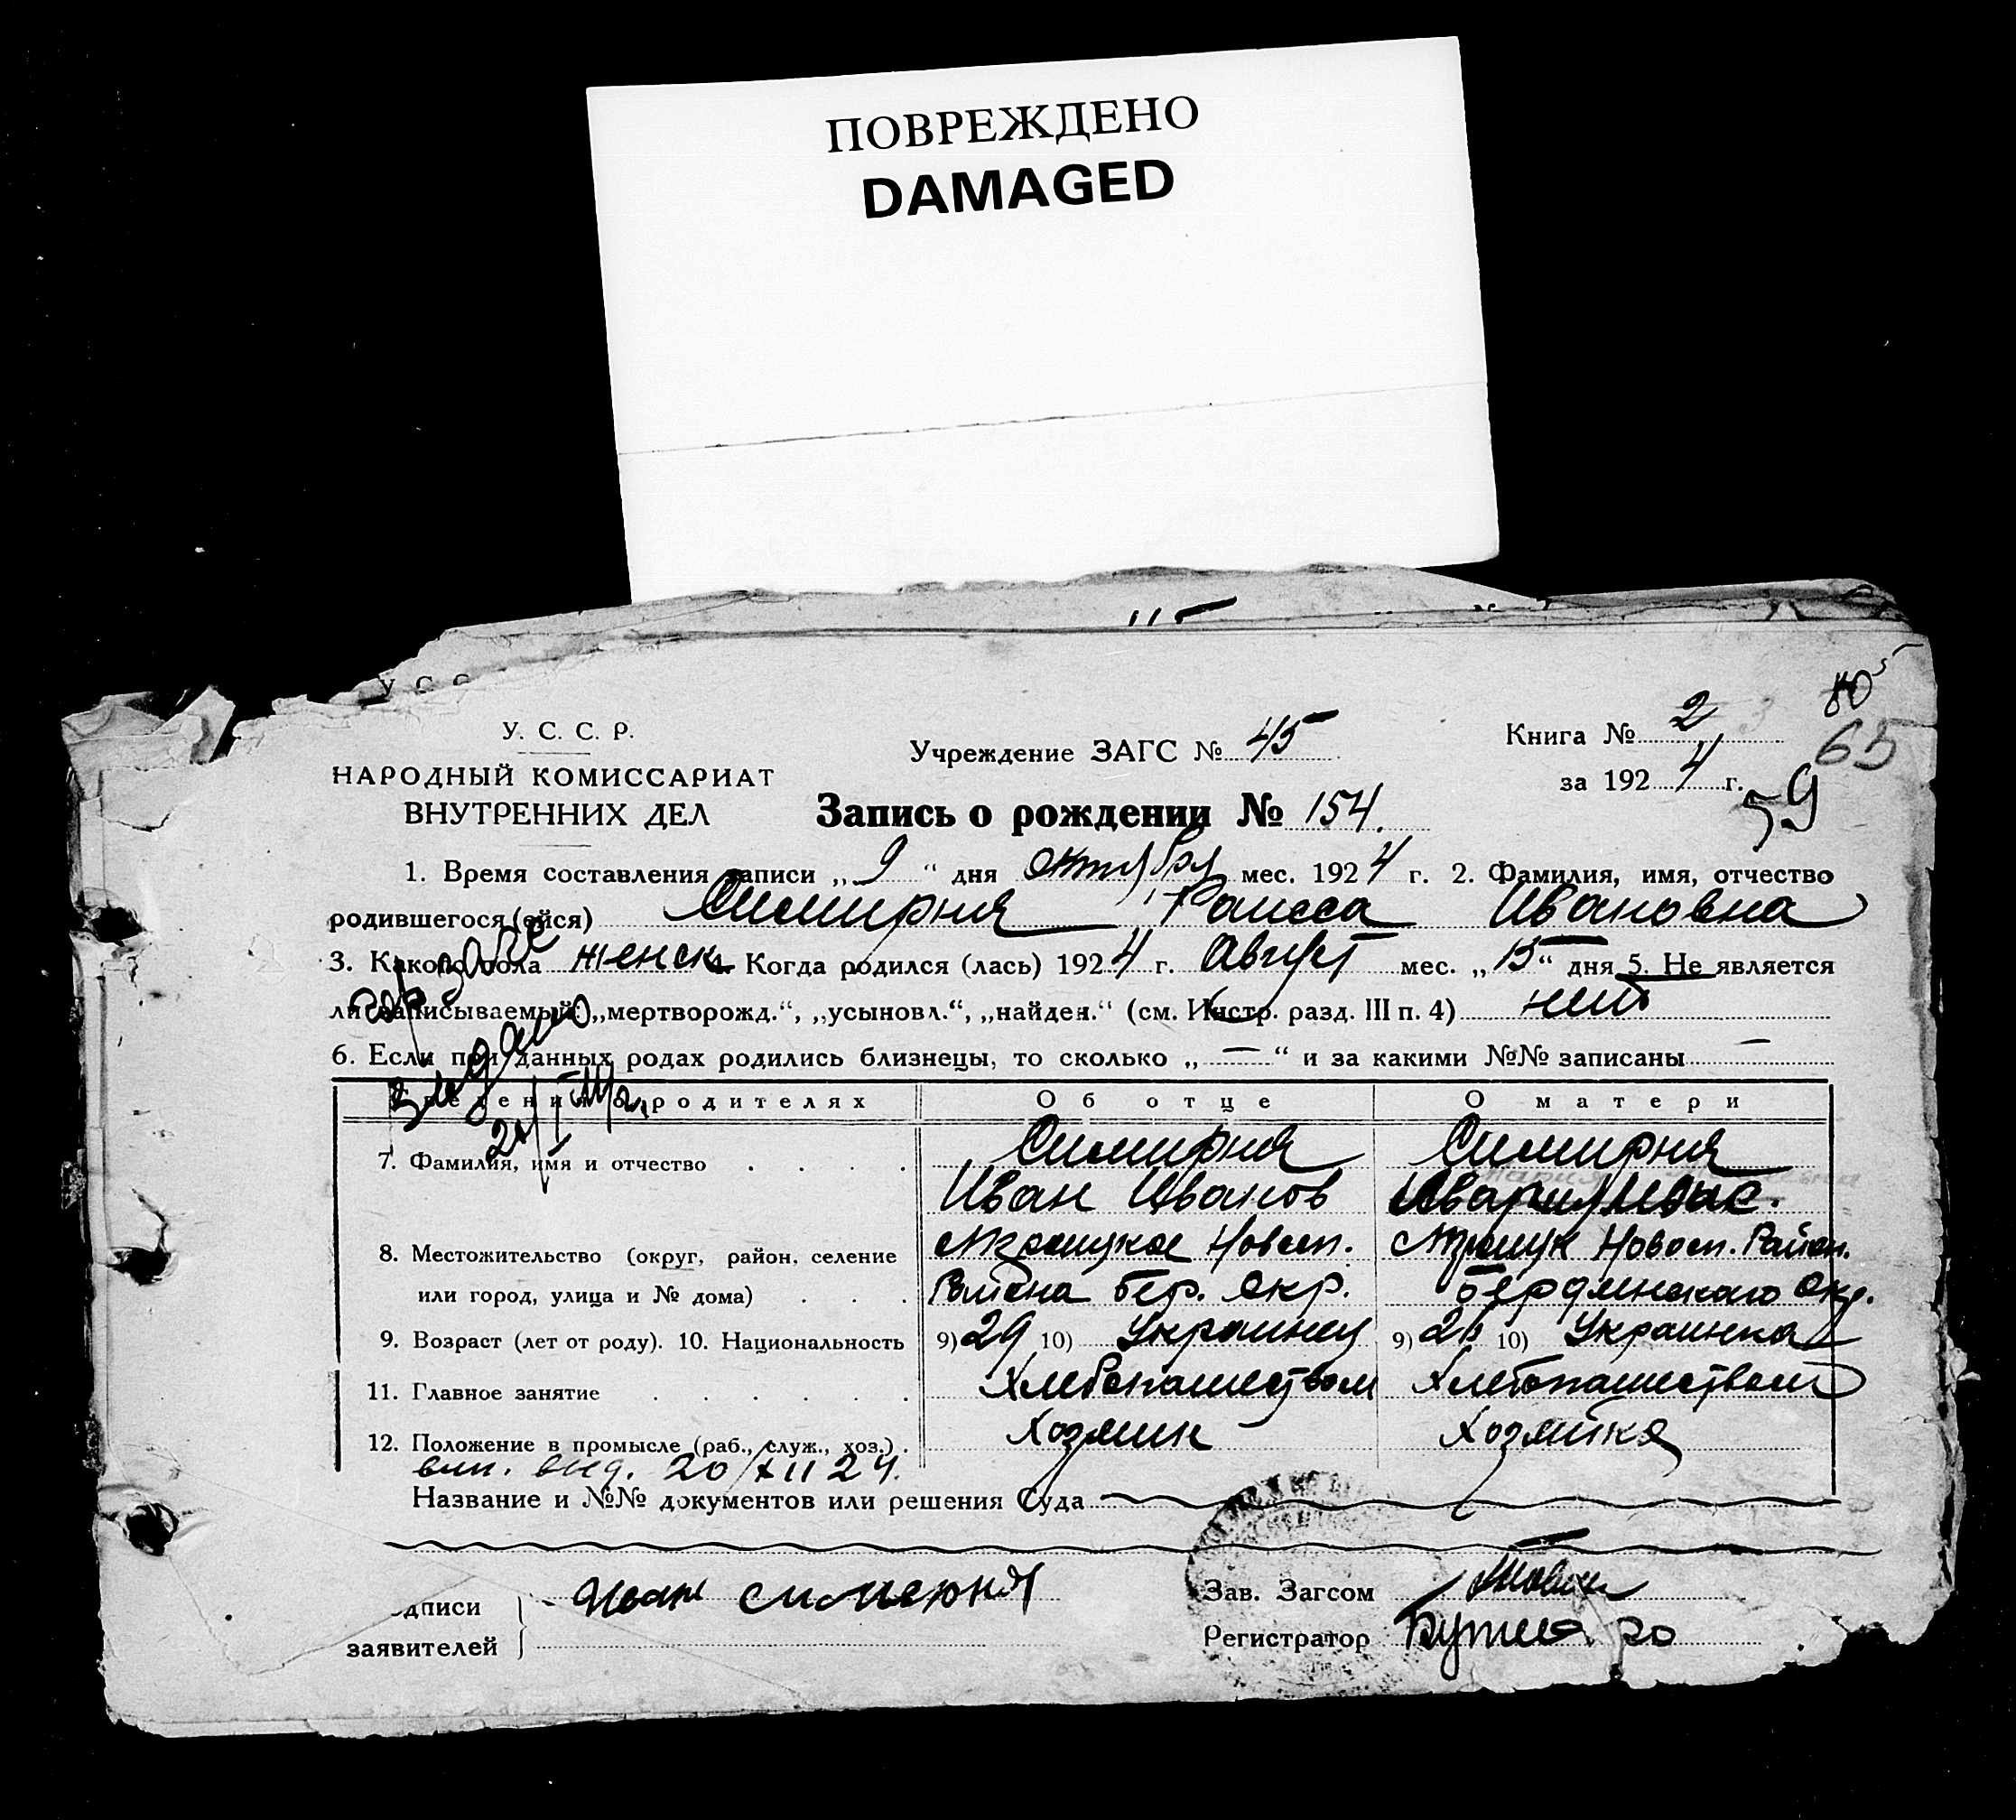 ПОВРЕЖДЕНО
DAMAGED
У С С
У. С. С. Р.
НАРОДНЫЙ КОМИССАРИАТ
ВНУТРЕННИХ ДЕЛ
Учреждение ЗАГС № 45
Книга № 2
за 1924 г.
65
59
Запись о рождении № 154.
1. Время составления записи „9“ дня октября мес. 1924 г. 2. Фамилия, имя, отчество
родившегося (ейся) Симирня Раисса Ивановна
3. Какого пола женск. Когда родился (лась) 1924 г. Август мес. „15“ дня 5. Не является
ли записываемый: „мертворожд.“, „усыновл.“, „найден.“ (см. Инстр. разд. III п. 4) нет
6. Если при данных родах родились близнецы, то сколько „—“ и за какими №№ записаны —
Сведения о родителях Об отце О матери
7. Фамилия, имя и отчество Симирня Симирня
Иван Иванов
8. Местожительство (округ, район, селение Новосп. Новосп. Район.
или город, улица и № дома) Района Бер. Окр. Бердянскаго Окр.
9. Возраст (лет от роду). 10. Национальность 9) 29 10) Украинец 9) 10) Украинка
11. Главное занятие Хлебопашеством Хлебопашеством
12. Положение в промысле (раб., служ., хоз.) Хозяин Хозяйка
вып. выд. 20/XII 24.
Название и №№ документов или решения Суда
одписи
заявителей
Иван Симирня
Зав. Загсом
Регистратор